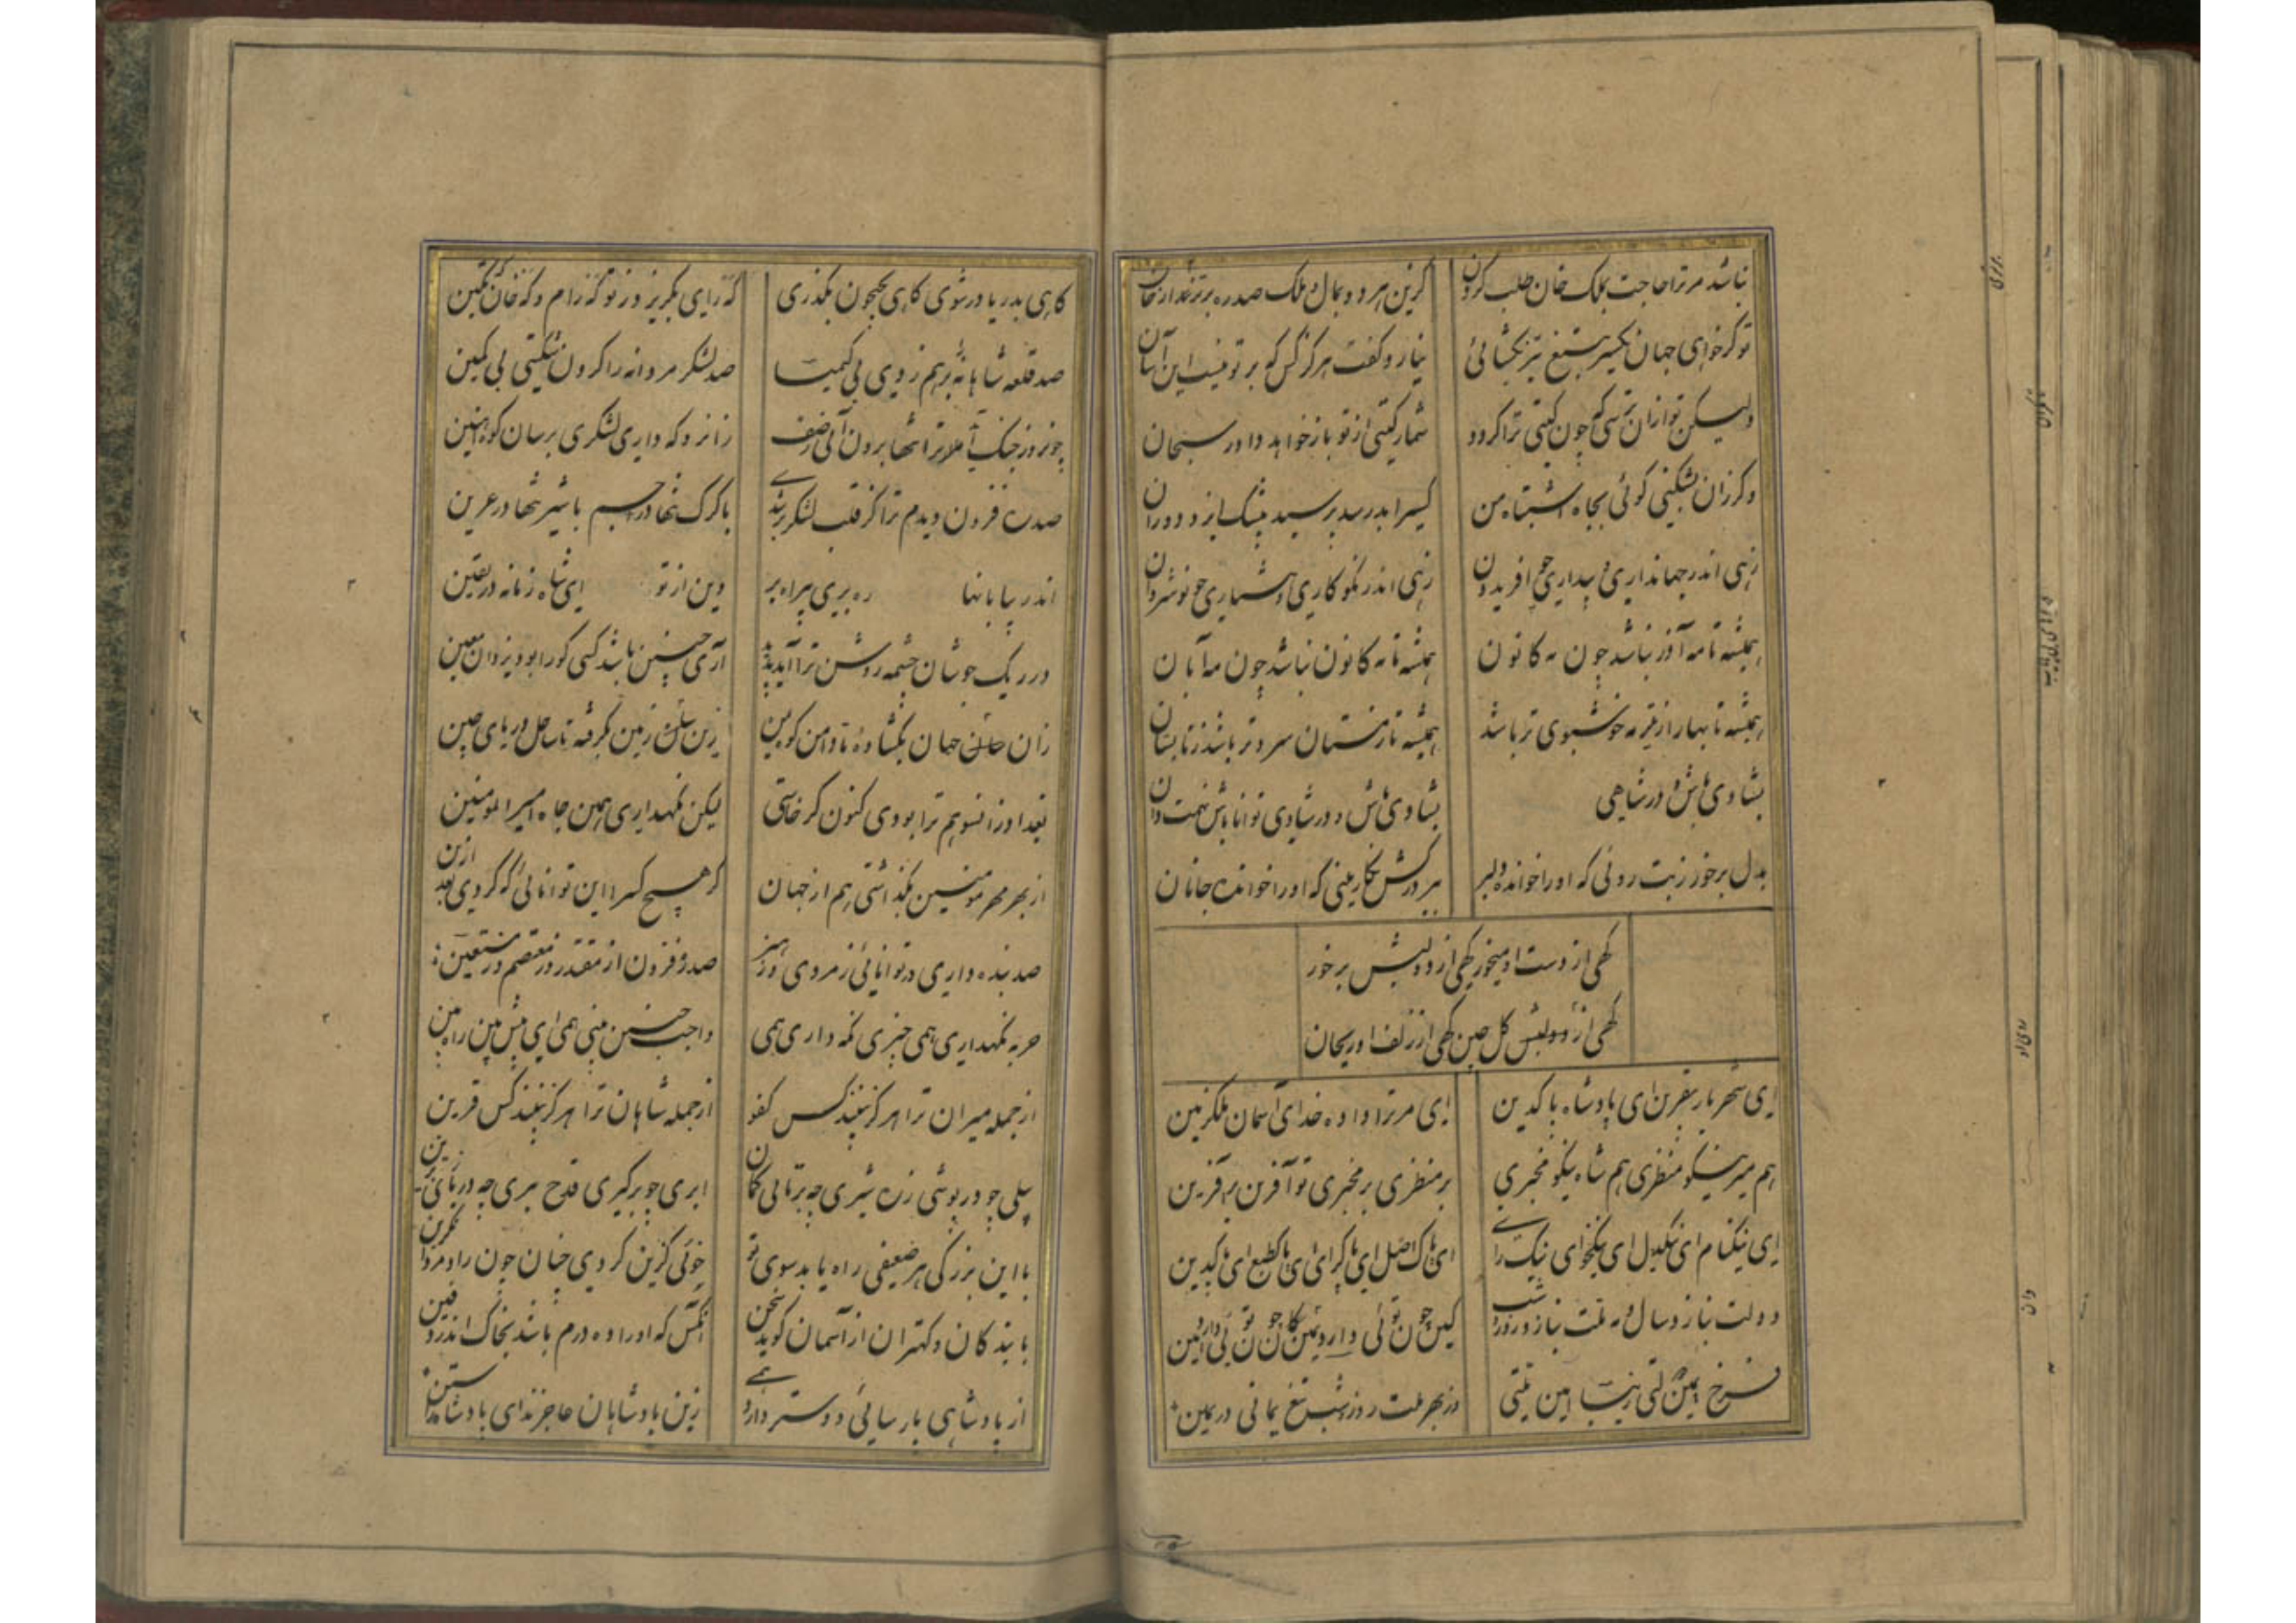 نباشد مر ترا حاجت بملک خان طلب کردن
کزین هر دو بمال و ملک صد ره برتر
تو گر خواهی جهان یکسر بتیغ تیز بگشائی
نیارد گفت هرگز کس که بر تو نیست این آسان
ولیکن تو ازان ترسی که چون گیتی ترا گردد
شمار گیتی از تو باز خواهد داور سبحان
وگرزان بشکنی گوئی بجاه اشتباه من
کسیرا بد رسد پرسید پیشک ایزد دوران
زهی اندر جهانداری و بیداری چو افریدون
زهی اندر نکوکاری و هشیاری چو نوشروان
همیشه تا مه آذر نباشد چون مه کانون
همیشه تا مه کانون نباشد چون مه آبان
همیشه تا بهار از تیر مه خوشبوی تر باشد
همیشه تا زمستان سردتر باشد ز تابستان
بشادی باش و در شاهی
بشادی باش و در شادی توانا باش نهمت ران
بدل بر خور ز بت روئی که او را خوانده دلبر
ببر درکش نگارینی که او را خوانده جانان
گهی از دست او میخور گهی از دو لبش بر خور
گهی از دو لبش گل چین گهی از زلف او ریحان
ای شهریار بیقرین ای پادشاه پاکدین
ای مر ترا داده خدای آسمان ملک زمین
هم میر نیکو منظری هم شاه نیکو مخبری
بر منظری بر مخبری تو آفرین بر آفرین
ای نیکنام ای نیکدل ای نیکخوای نیک رای
ای پاک اصل ای پاک رای ای پاک طبع ای پاکدین
دولت بنازد سال و مه ملت بنازد روز و شب
کین چون توئی دارد یمین کان چون توئی دارد امین
فرخ یمین دولتی زیبا امین ملتی
از بهر ملت روز و شب تیغ یمانی در یمین
گاهی بدریا در شوی گاهی بجیحون بگذری
گه رای بگریزد ز تو گه رام و گه خان گه تکین
صد قلعه شاهانه بر هم زدی بی کیمیا
صد لشکر مردانه را گردن شکستی بی کمین
چون روز جنگ آید ملا تو تنها برون آئی ز صف
زانرو که داری لشکری برسان کوه آهنین
صد ره فزون دیدم ترا کز قلب لشکر
با کرگ تنها در اجم با شیر تنها در عرین
اندر بیابانها ره بری بیراه بر
وین از تو ای شاه زمانه در یقین
در ریگ جوشان چشمه روشن ترا آید پدید
آری چنین باشد کسی کو را بود یزدان معین
زان جانب جهان بگشاده تا دامن کوه
زین سنگ زمین بگرفته تا ساحل دریای چین
بغداد و زانسو هم ترا بودی کنون گر خواستی
لیکن نگهداری همین جاه امیر المومنین
از بهر میر مومنین بگذاشتی هم از جهان
کز هیچ کس را این توانائی که کردی بعد ازین
صد بنده داری در توانائی ز مردی و هنر
صد ره فزون از مقتدر وز معتصم وز مستعین
حربه نگهداری همی چیزی نگه داری همی
واجب چنین بینی همی ای پیش بین راه بین
از جمله میران ترا هرگز نبیند کس کفو
از جمله شاهان ترا هرگز نبیند کس قرین
پیلی چو در پوشی زره شیری چو برتابی کمان
ابری چو برگیری قدح ببری چه در یازی زین
با این بزرگی هر ضعیفی راه یابد سوی تو
خوئی گزین کردی چنان چون راد مردان گزین
با بندگان و کهتران از آسمان گوید سخن
آنکس که او را ده درم باشد بخاک اندر دفین
از پادشاهی پارسائی دوستر دارد همی
زین پادشاهان عاجزند ای پادشاه راستین